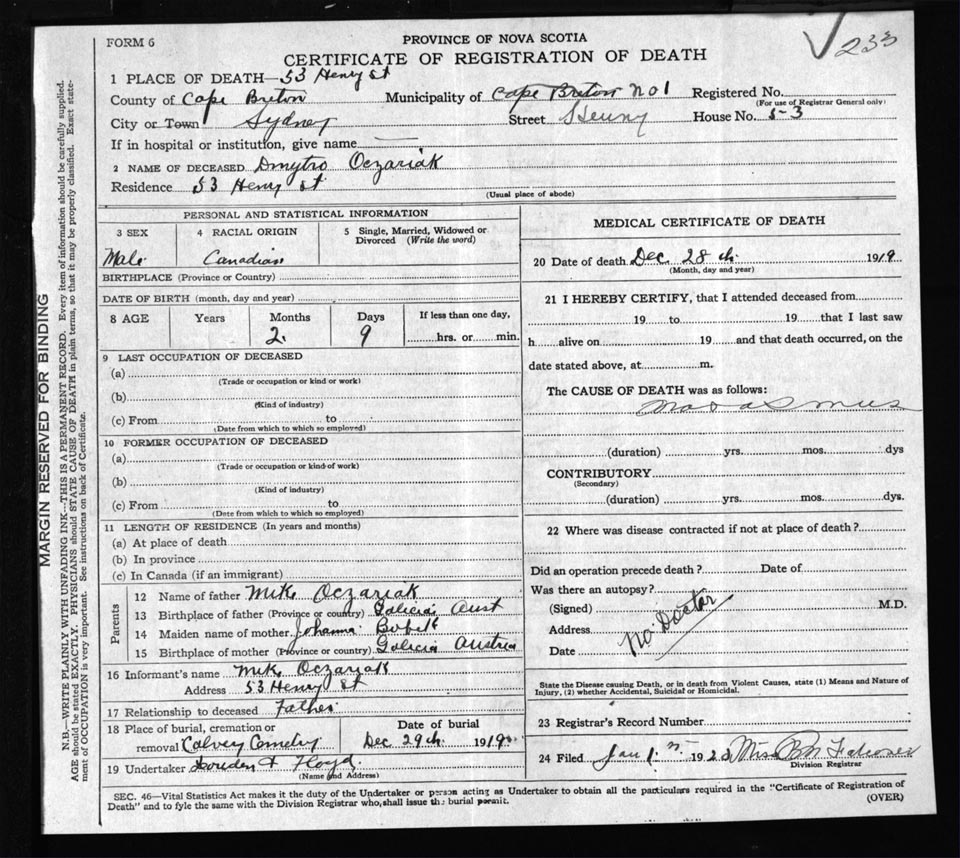 FORM 6
PROVINCE OF NOVA SCOTIA
233
CERTIFICATE OF REGISTRATION OF DEATH
1 PLACE OF DEATH—53 Henry St
County of Cape Breton Municipality of Cape Breton No 1 Registered No.
(For use of Registrar General only)
City or Town Sydney Street Henry House No. 53
If in hospital or institution, give name
2 NAME OF DECEASED Dmytro Oczariak
Residence 53 Henry St
(Usual place of abode)
PERSONAL AND STATISTICAL INFORMATION
3 SEX 4 RACIAL ORIGIN 5 Single, Married, Widowed or Divorced (Write the word)
Male Canadian
BIRTHPLACE (Province or Country)
DATE OF BIRTH (month, day and year)
8 AGE Years Months Days If less than one day,
2 9 hrs. or min.
9 LAST OCCUPATION OF DECEASED
(a)
(Trade or occupation or kind or work)
(b)
(Kind of industry)
(c) From to
(Date from which to which so employed)
10 FORMER OCCUPATION OF DECEASED
(a)
(Trade or occupation or kind of work)
(b)
(Kind of industry)
(c) From to
(Date from which to which so employed)
11 LENGTH OF RESIDENCE (In years and months)
(a) At place of death
(b) In province
(c) In Canada (if an immigrant)
Parents
12 Name of father Mike Oczariak
13 Birthplace of father (Province or country) Galicia Aust
14 Maiden name of mother Johanna
15 Birthplace of mother (Province or country) Galicia Austria
16 Informant's name Mike Oczariak
Address 53 Henry St
17 Relationship to deceased Father
18 Place of burial, cremation or Date of burial
removal Calvey Cemetery Dec 29th 1919
19 Undertaker & Floyd
(Name and Address)
MEDICAL CERTIFICATE OF DEATH
20 Date of death Dec 28th 1919
(Month, day and year)
21 I HEREBY CERTIFY, that I attended deceased from
19 to 19 that I last saw
h alive on 19 and that death occurred, on the
date stated above, at m.
The CAUSE OF DEATH was as follows:
Marasmus
(duration) yrs. mos. dys
CONTRIBUTORY
(Secondary)
(duration) yrs. mos. dys.
22 Where was disease contracted if not at place of death?
Did an operation precede death? Date of
Was there an autopsy?
(Signed) M.D.
Address
Date
No Doctor
State the Disease causing Death, or in death from Violent Causes, state (1) Means and Nature of
Injury, (2) whether Accidental, Suicidal or Homicidal.
23 Registrar's Record Number
24 Filed Jan 1 192 Miss
Division Registrar
SEC. 46—Vital Statistics Act makes it the duty of the Undertaker or person acting as Undertaker to obtain all the particulars required in the "Certificate of Registration of
Death" and to fyle the same with the Division Registrar who shall issue the burial permit.
(OVER)
MARGIN RESERVED FOR BINDING
N.B.—WRITE PLAINLY WITH UNFADING INK—THIS IS A PERMANENT RECORD. Every item of information should be carefully supplied.
AGE should be stated EXACTLY. PHYSICIANS should STATE CAUSE OF DEATH in plain terms, so that it may be properly classified. Exact state-
ment of OCCUPATION is very important. See instructions on back of Certificate.